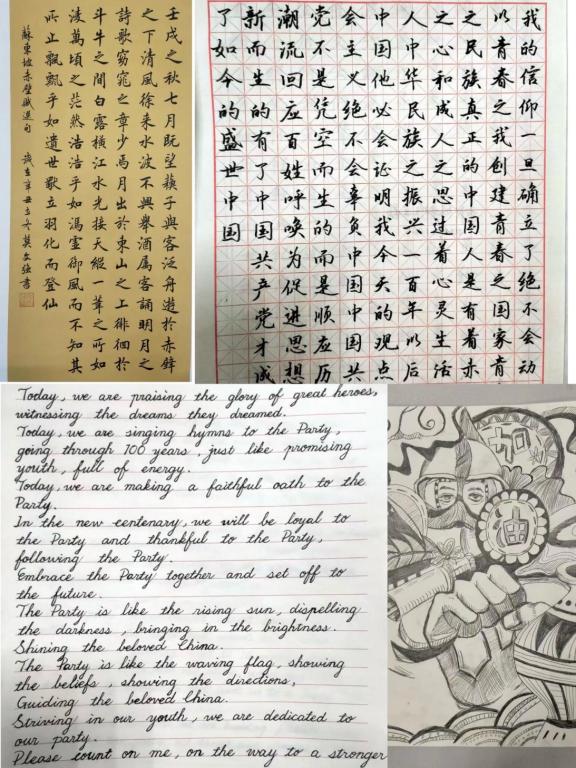 壬戌之秋七月既望蘇子與客泛舟遊於赤壁
之下清風徐來水波不興舉酒屬客誦明月之
詩歌窈窕之章少焉月出於東山之上徘徊於
斗牛之間白露橫江水光接天縱一葦之所如
淩萬頃之茫然浩浩乎如馮虛御風而不知其
所止飄飄乎如遺世獨立羽化而登仙
蘇東坡赤壁賦選句 歲在辛丑立冬莫文強書
我的信仰一旦确立了绝不会动
以青春之我创建青春之国家青
之民族真正的中国人是有着赤
之心和成人之思过着心灵生活
人中华民族之振兴一百年以后
中国他必会证明我今天的观点
会主义绝不会辜负中国中国共
党不是凭空而生的是顺应历
潮流回应百姓呼唤为促进思想
新而生的有了中国共产党才成
了如今的盛世中国
Today, we are praising the glory of great heroes,
witnessing the dreams they dreamed.
Today, we are singing hymns to the Party,
going through 100 years, just like promising
youth, full of energy.
Today, we are making a faithful oath to the
Party.
In the new centenary, we will be loyal to
the Party and thankful to the Party,
following the Party.
Embrace the Party together and set off to
the future.
The Party is like the rising sun, dispelling
the darkness, bringing in the brightness.
Shining the beloved China.
The Party is like the waving flag, showing
the beliefs, showing the directions,
Guiding the beloved China.
Striving in our youth, we are dedicated to
our party.
Please count on me, on the way to a stronger
加
油